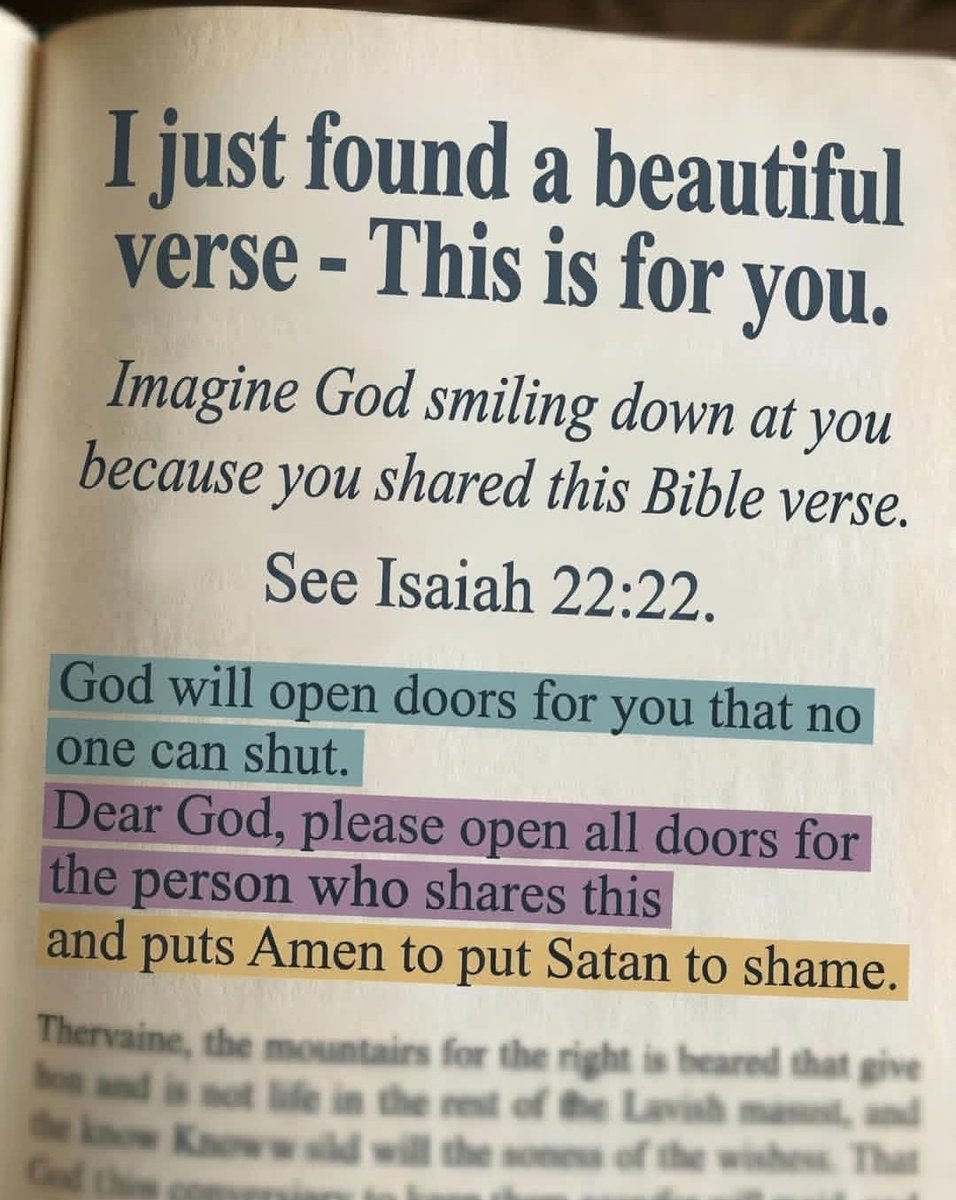 I just found a beautiful
verse - This is for you.
Imagine God smiling down at you
because you shared this Bible verse.
See Isaiah 22:22.
God will open doors for you that no
one can shut.
Dear God, please open all doors for
the person who shares this
and puts Amen to put Satan to shame.
Thervaine, the mountairs for the right is beared that give
and is not life in the rest of the Lavish and
the know will the of the wishess. That
God